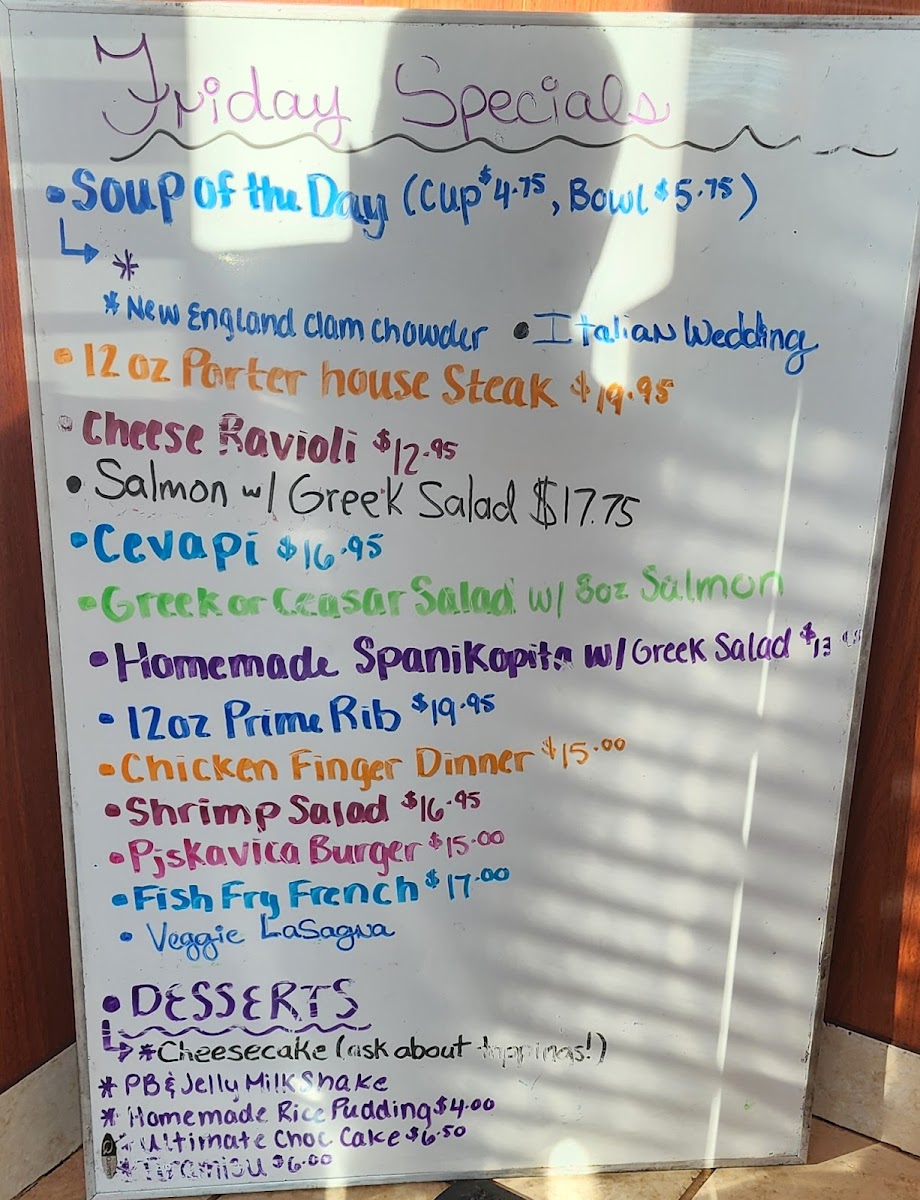 Friday Specials
• Soup of the Day (Cup $4.75, Bowl $5.75)
*
* New England Clam Chowder • Italian Wedding
• 12 oz Porter house Steak $19.95
• Cheese Ravioli $12.95
• Salmon w/ Greek Salad $17.75
• Cevapi $16.95
• Greek or Ceasar Salad w/ 8oz Salmon
• Homemade Spanikopita w/ Greek Salad
• 12oz Prime Rib $19.95
• Chicken Finger Dinner $15.00
• Shrimp Salad $16.95
• Pjskavica Burger $15.00
• Fish Fry French $17.00
• Veggie LaSagna
• DESSERTS
* Cheesecake (ask about toppings!)
* PB & Jelly Milk Shake
* Homemade Rice Pudding $4.00
* Ultimate Choc Cake $6.50
* Tiramisu $6.00